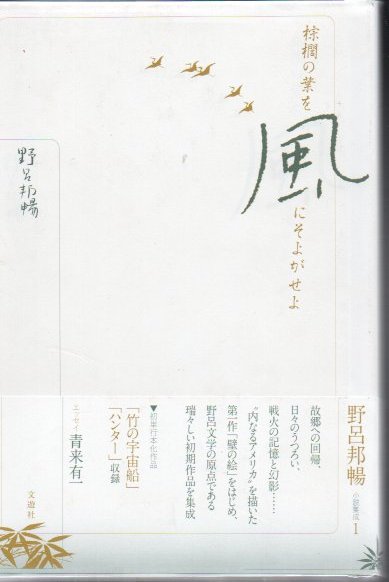 棕櫚の葉を
風
にそよがせよ
野呂邦暢
野呂邦暢
小説集成1
故郷への回帰、
日々のうつろい、
戦火の記憶と幻影……
“内なるアメリカ”を描いた
第一作「壁の絵」をはじめ、
野呂文学の原点である
瑞々しい初期作品を集成
▼初単行本化作品
「竹の宇宙船」
「ハンター」収録
エッセイ 青来有一
文遊社